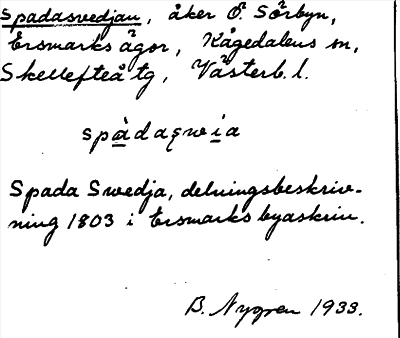 Spadasvedjan, åker Ö. Sörbyn,
Ersmarks ägor, Kågedalens sn,
Skellefteå tg, Västerb. l.
Spada Swedja, delningsbeskriv-
ning 1803 i Ersmarks byaskrin.
B. Nygren 1933.